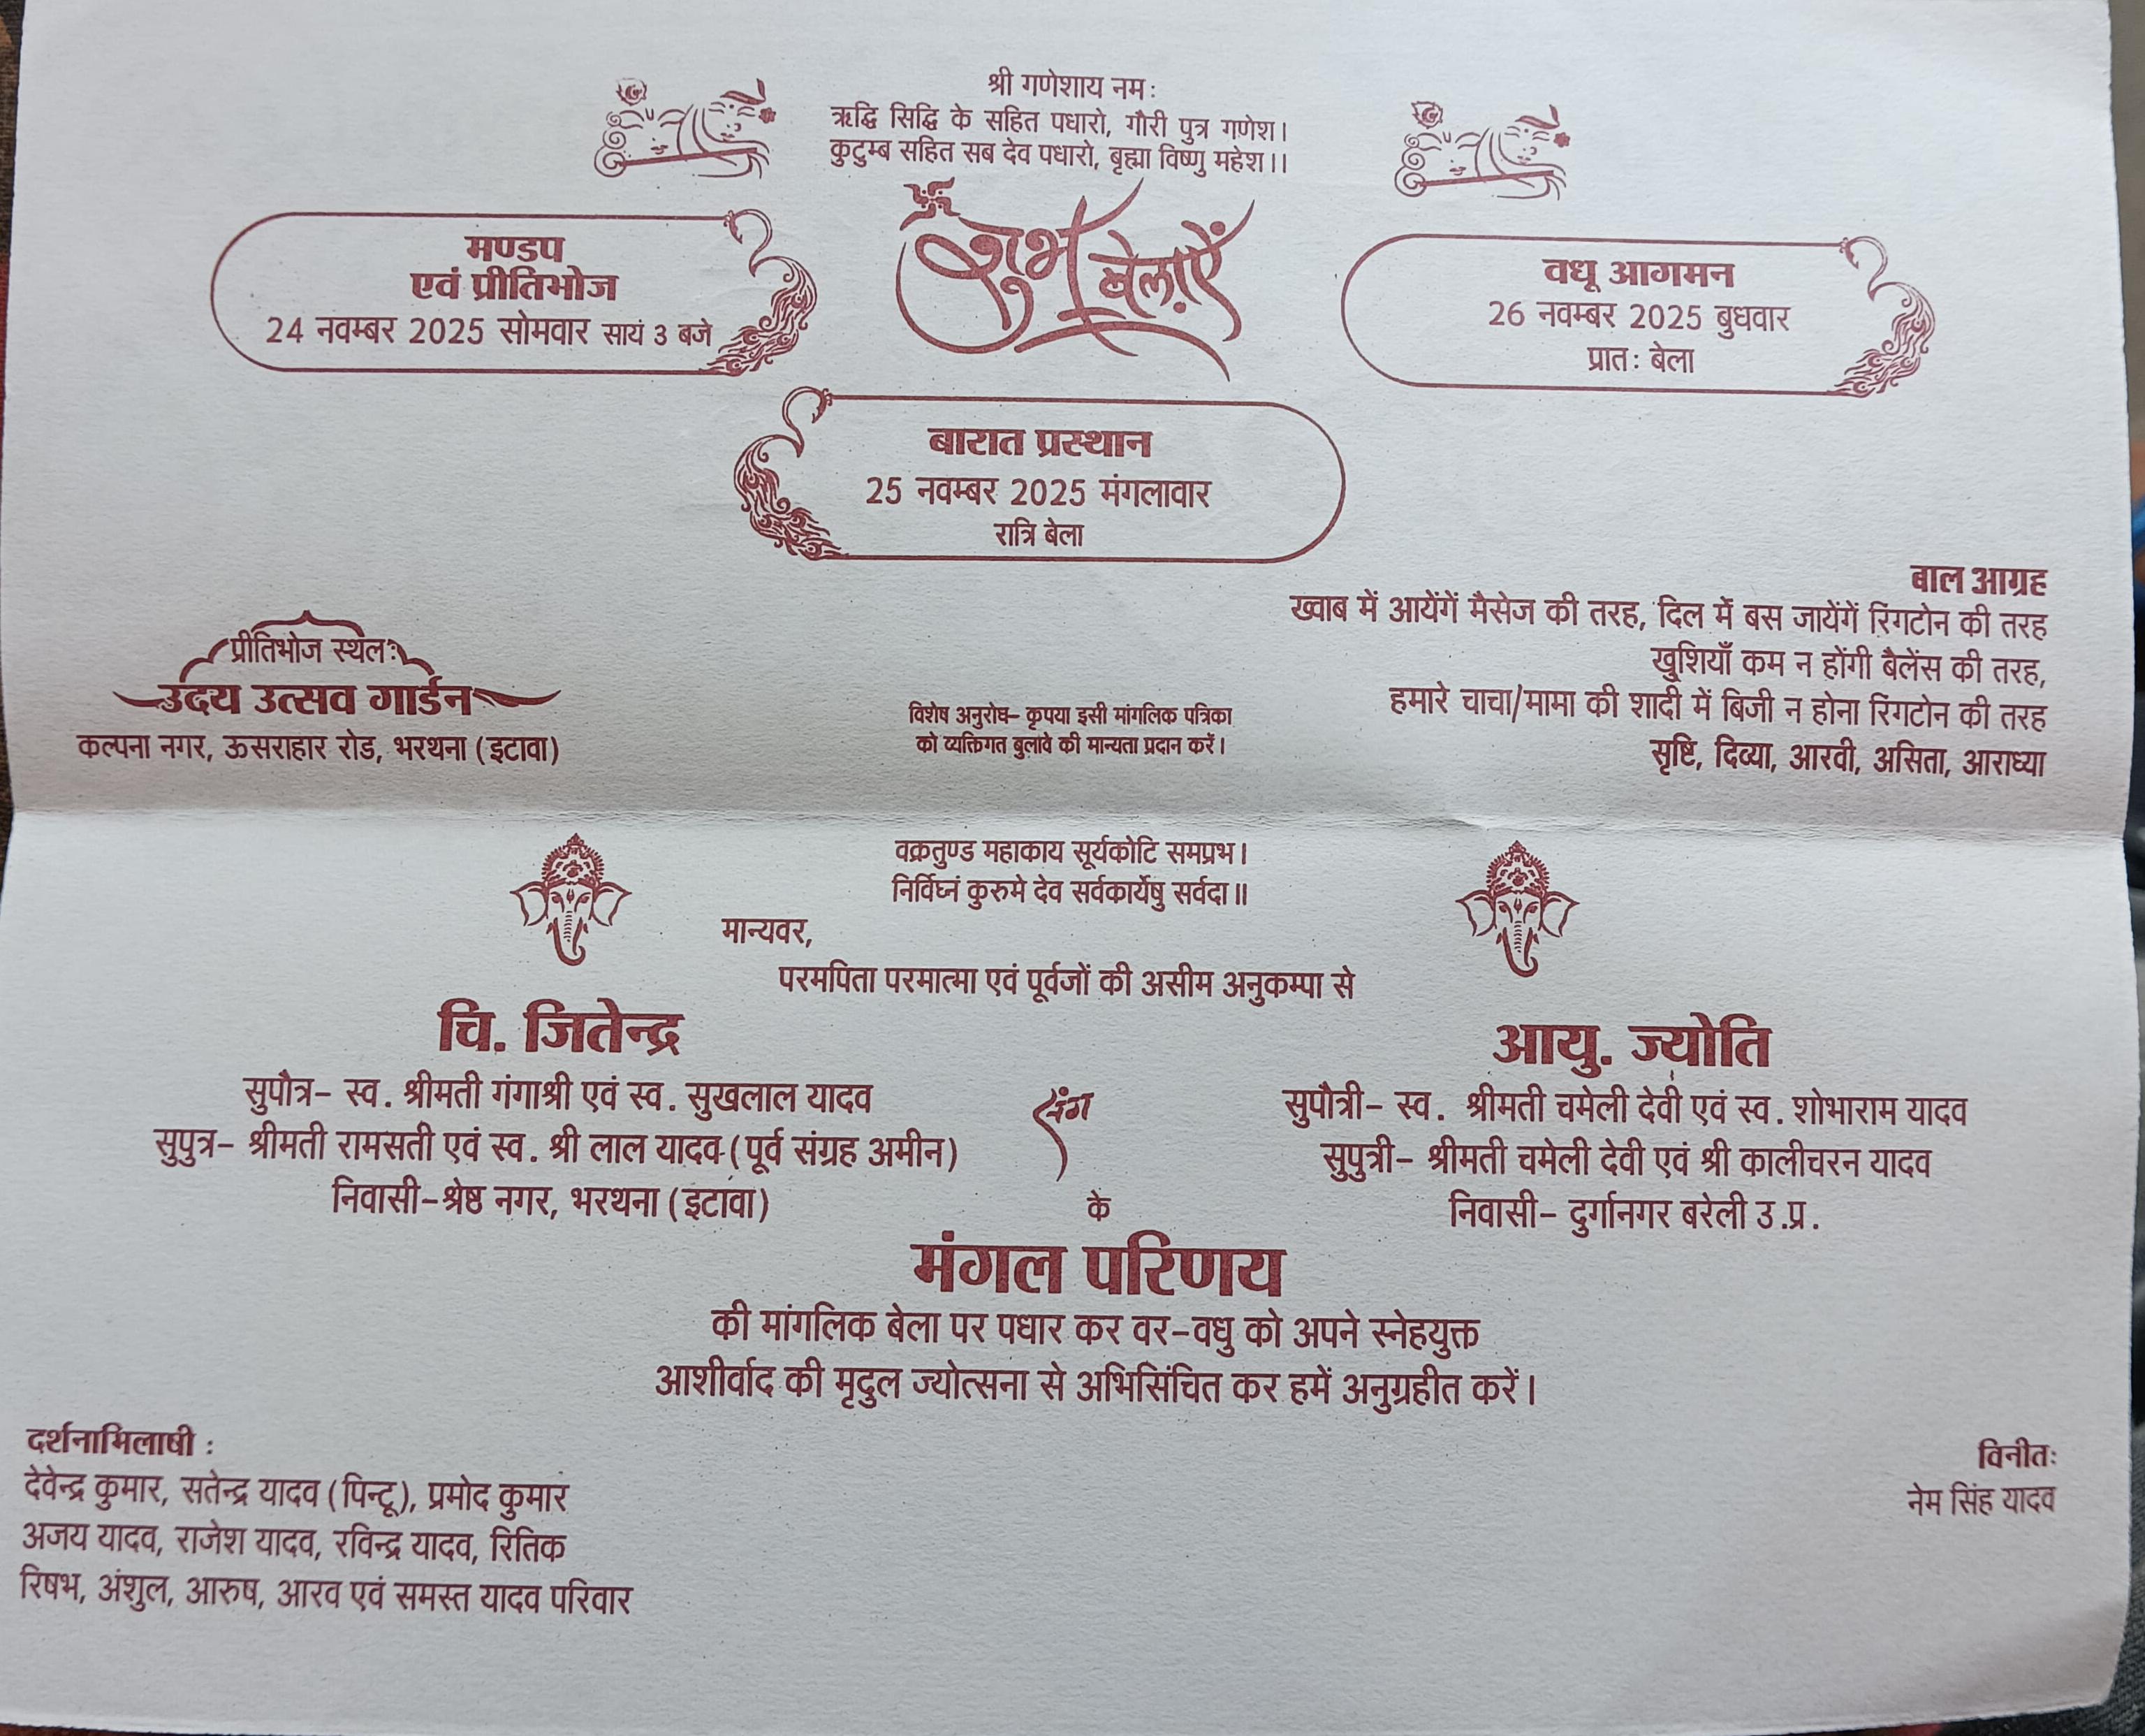 श्री गणेशाय नमः
ऋद्धि सिद्धि के सहित पधारो, गौरी पुत्र गणेश।
कुटुम्ब सहित सब देव पधारो, बृह्मा विष्णु महेश।।
शुभ बेलाएें
मण्डप
एवं प्रीतिभोज
24 नवम्बर 2025 सोमवार सायं 3 बजे
वधू आगमन
26 नवम्बर 2025 बुधवार
प्रातः बेला
बारात प्रस्थान
25 नवम्बर 2025 मंगलावार
रात्रि बेला
बाल आग्रह
ख्वाब में आयेंगें मैसेज की तरह, दिल में बस जायेंगें रिंगटोन की तरह
खुशियाँ कम न होंगी बैलेंस की तरह,
हमारे चाचा/मामा की शादी में बिजी न होना रिंगटोन की तरह
सृष्टि, दिव्या, आरवी, असिता, आराध्या
प्रीतिभोज स्थलः
उदय उत्सव गार्डन
कल्पना नगर, ऊसराहार रोड, भरथना (इटावा)
विशेष अनुरोध– कृपया इसी मांगलिक पत्रिका
को व्यक्तिगत बुलावे की मान्यता प्रदान करें।
वक्रतुण्ड महाकाय सूर्यकोटि समप्रभ।
निर्विघ्नं कुरुमे देव सर्वकार्येषु सर्वदा॥
मान्यवर,
परमपिता परमात्मा एवं पूर्वजों की असीम अनुकम्पा से
चि. जितेन्द्र
सुपौत्र– स्व. श्रीमती गंगाश्री एवं स्व. सुखलाल यादव
सुपुत्र– श्रीमती रामसती एवं स्व. श्री लाल यादव (पूर्व संग्रह अमीन)
निवासी–श्रेष्ठ नगर, भरथना (इटावा)
संग
आयु. ज्योति
सुपौत्री– स्व. श्रीमती चमेली देवी एवं स्व. शोभाराम यादव
सुपुत्री– श्रीमती चमेली देवी एवं श्री कालीचरन यादव
निवासी– दुर्गानगर बरेली उ.प्र.
के
मंगल परिणय
की मांगलिक बेला पर पधार कर वर–वधु को अपने स्नेहयुक्त
आशीर्वाद की मृदुल ज्योत्सना से अभिसिंचित कर हमें अनुग्रहीत करें।
दर्शनाभिलाषी :
देवेन्द्र कुमार, सतेन्द्र यादव (पिन्टू), प्रमोद कुमार
अजय यादव, राजेश यादव, रविन्द्र यादव, रितिक
रिषभ, अंशुल, आरुष, आरव एवं समस्त यादव परिवार
विनीतः
नेम सिंह यादव